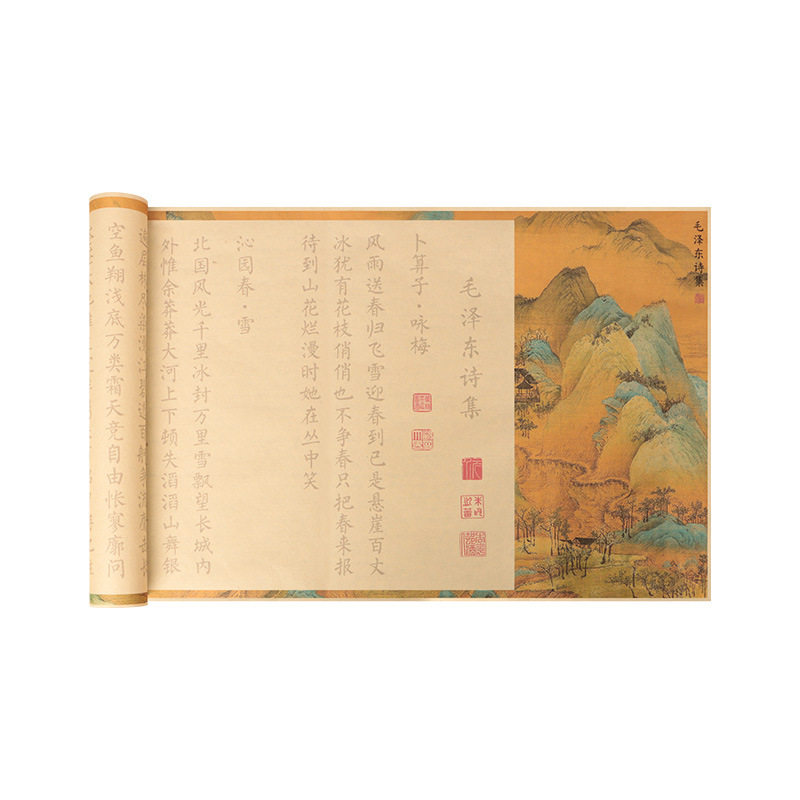 毛泽东诗集
毛泽东诗集
卜算子·咏梅
风雨送春归飞雪迎春到已是悬崖百丈
冰犹有花枝俏俏也不争春只把春来报
待到山花烂漫时她在丛中笑
沁园春·雪
北国风光千里冰封万里雪飘望长城内
外惟余莽莽大河上下顿失滔滔山舞银
遍层林尽染漫江碧透百舸争流鹰击长
空鱼翔浅底万类霜天竞自由怅寥廓问